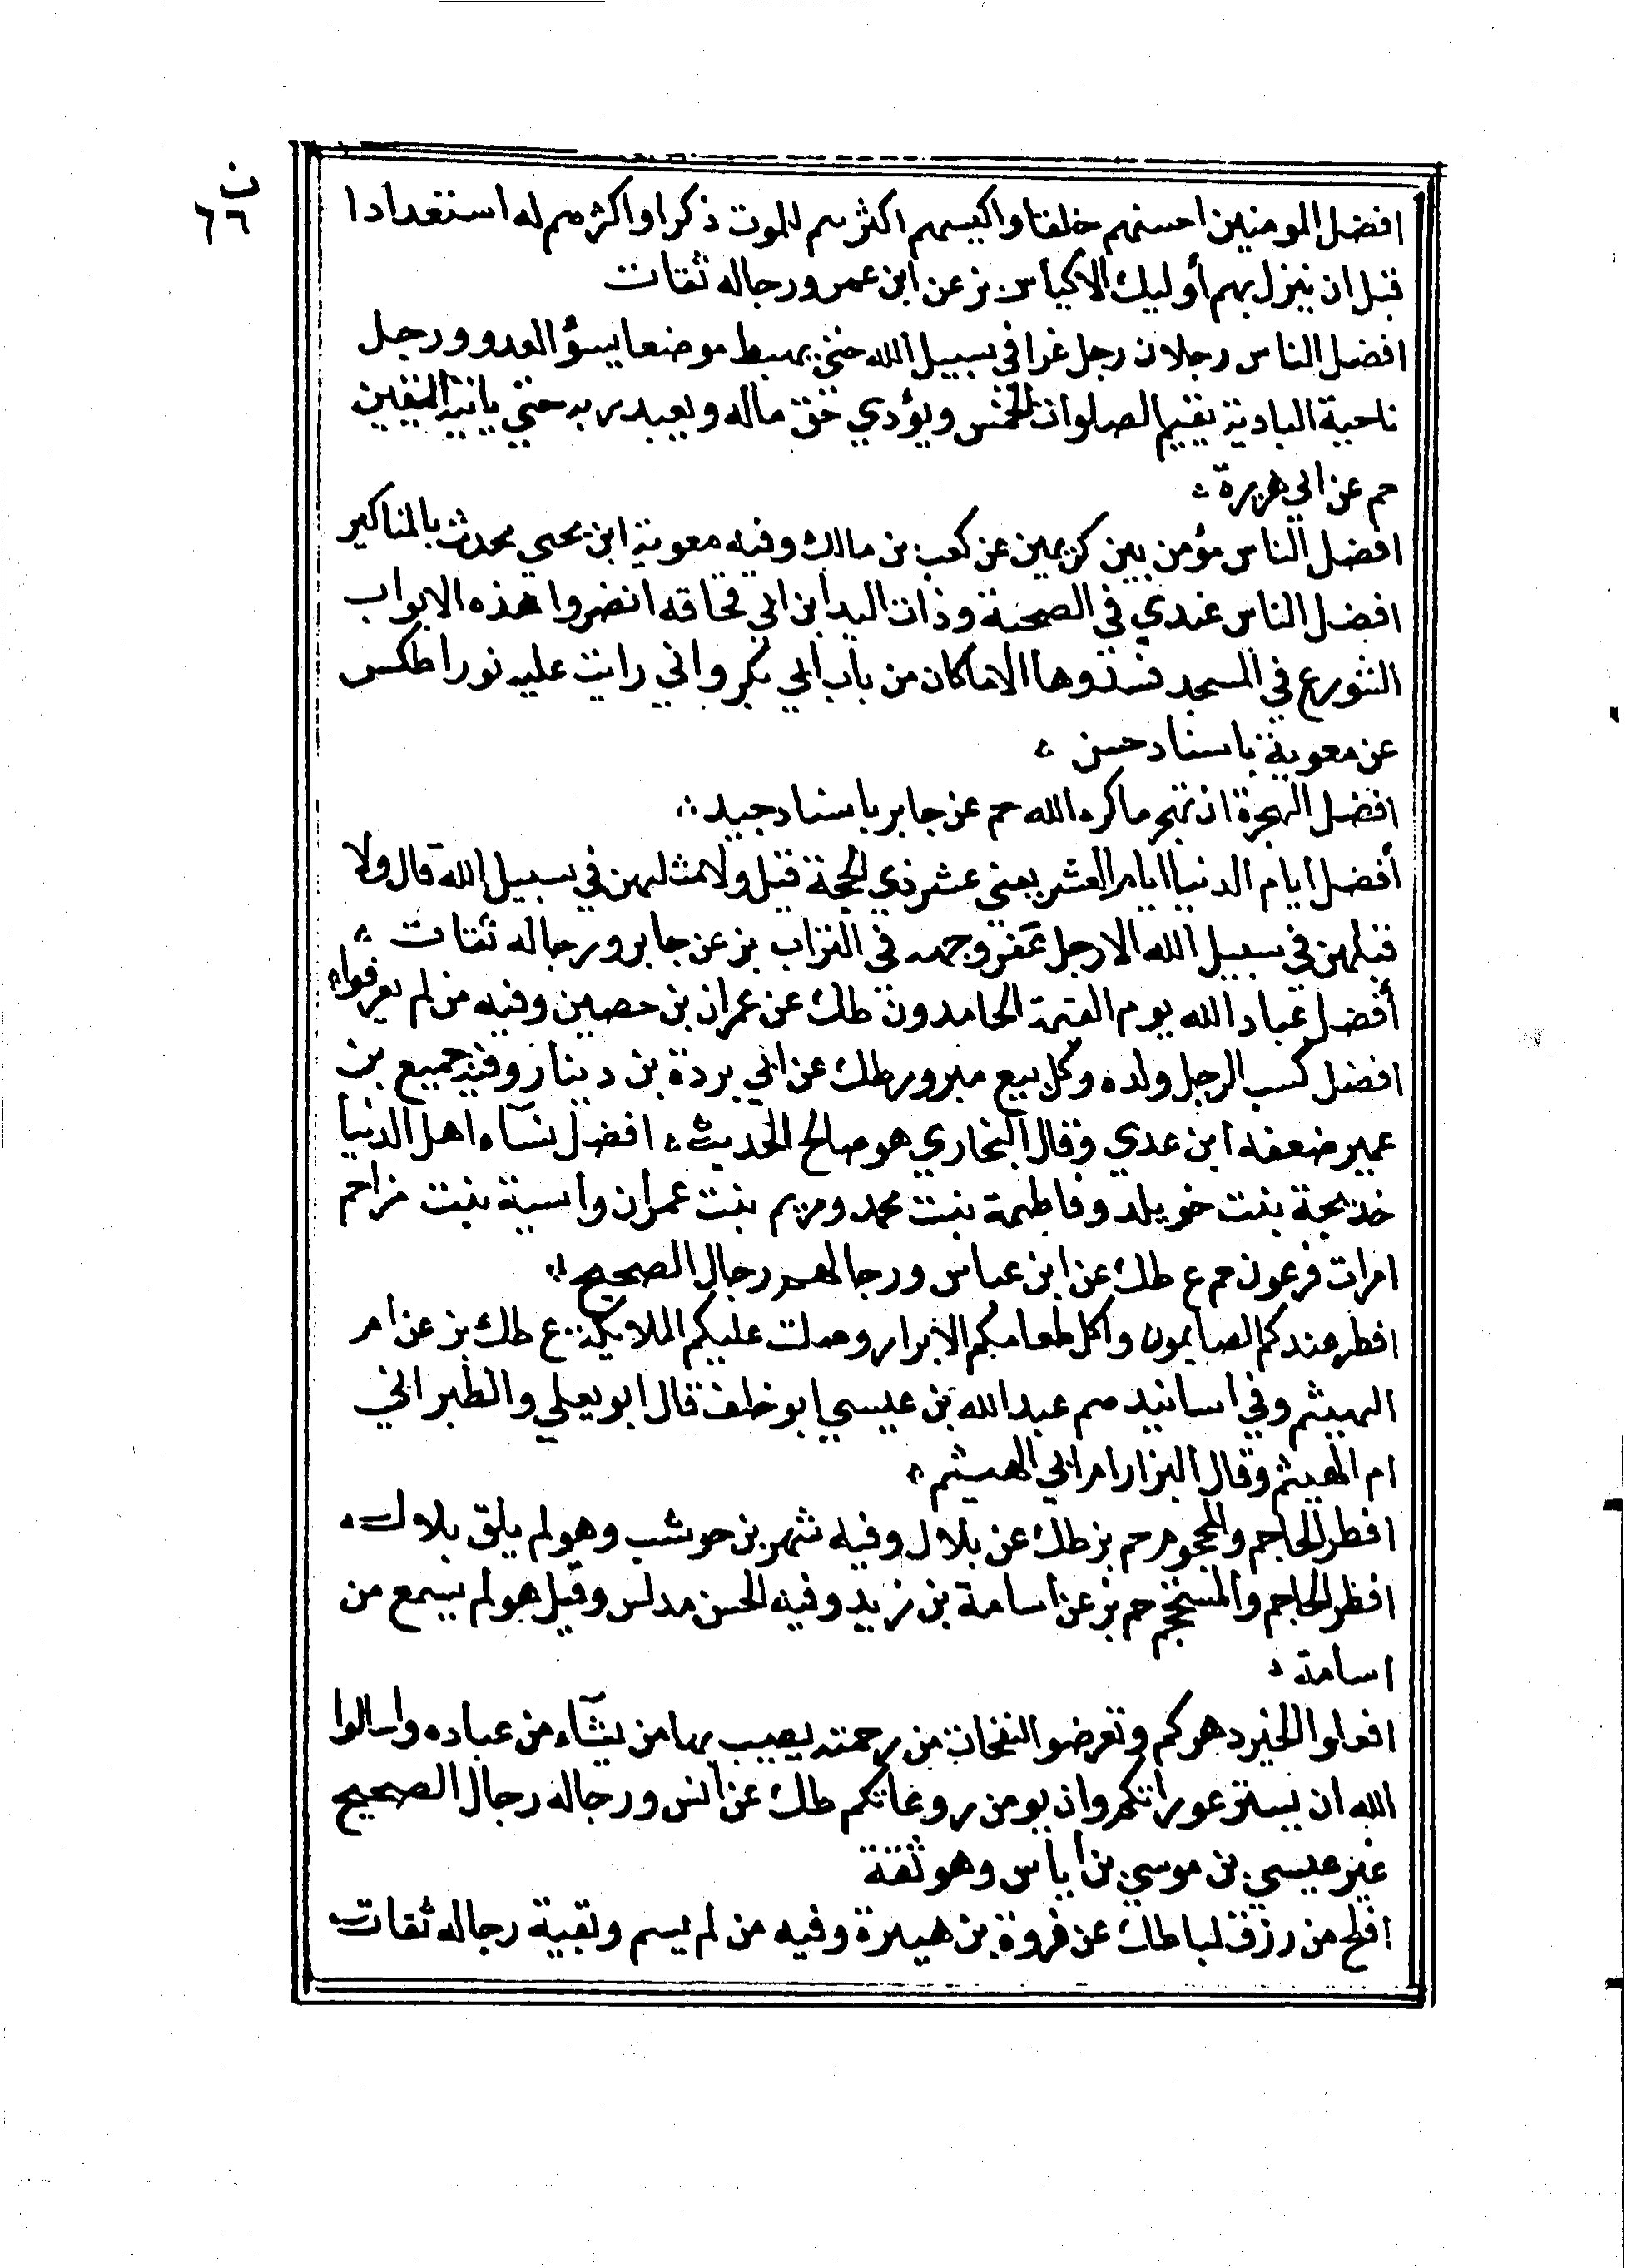 ن
٦٦
افضل المومنين احسنهم خلقا واكيسهم اكثرهم للموت ذكرا واكثرهم له استعدادا
قبل ان ينزل بهم أوليك الاكياس بز عن ابن عمر ورجاله ثقات
افضل الناس رجلان رجل غزا في سبيل الله حتي يهبط موضعا يسؤ العدو ورجل
ناحية البادية يقيم الصلوات الخمس ويؤدي حق ماله ويعبد ربه حتي ياتيه اليقين
حم عن ابي هريرة
افضل الناس مؤمن بين كريمين عن كعب بن مالك وفيه معوية ابن يحيي محدث بالمناكير
افضل الناس عندي في الصحبة وذات اليد ابن ابي قحافه انضروا هذه الابواب
الشورع في المسجد فسدوها الا ما كان من باب ابي بكر واني رايت عليه نورا طكس
عن معوية باسناد حسن
افضل الهجرة ان تهجر ما كره الله حم عن جابر باسناد جيد
أفضل ايام الدنيا ايام العشر يعني عشر ذي الحجة قيل ولا مثلهن في سبيل الله قال ولا
مثلهن في سبيل الله الا رجل عفر وجهه في التراب بز عن جابر ورجاله ثقات
أفضل عباد الله يوم القيمة الحامدون طك عن عمران بن حصين وفيه من لم يعرفوا
افضل كسب الرجل ولده وكل بيع مبرور طك عن ابي بردة بن دينار وفيه جميع بن
عمير ضعفه ابن عدي وقال البخاري هو صالح الحديث افضل نسآء اهل الدنيا
خديجة بنت خويلد وفاطمة بنت محمد ومريم بنت عمران واسية بنت مزاحم
امرات فرعون حم ع طك عن ابن عباس ورجالهم رجال الصحيح
افطر عندكم الصايمون واكل طعامكم الابرار وصلت عليكم الملايكة ع طك بز عن ام
الهيثم وفي اسانيدهم عبد الله بن عيسي ابو خلف قال ابو يعلي والطبراني
ام الهيثم وقال البزار ام ابي الهيثم
افطر الحاجم والمحجوم حم بز طك عن بلال وفيه شهر بن حوشب وهو لم يلق بلال
افطر الحاجم والمستحجم حم بز عن اسامة بن زيد وفيه الحسن مدلس وقيل هو لم يسمع من
اسامة
افعلوا الخير دهركم وتعرضوا النفحات من رحمته يصيب بها من يشآء من عباده واسالوا
الله ان يستر عوراتكم وان يومن روعاتكم طك عن انس ورجاله رجال الصحيح
غير عيسي بن موسي بن اياس وهو ثقة
افلح من رزق لبا طك عن فروة بن هبيرة وفيه من لم يسم وبقية رجاله ثقات